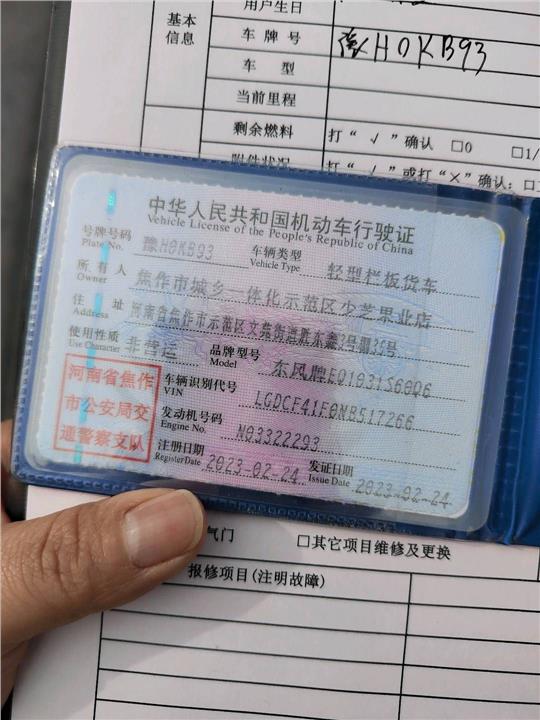 用户生日
基本
信息
车牌号 豫H0KB93
车 型
当前里程
剩余燃料 打“√”确认 □0 □1/
附件状况 打“√”或打“×”确认:□
中华人民共和国机动车行驶证
Vehicle License of the People's Republic of China
号牌号码 豫H0KB93 车辆类型 轻型栏板货车
Plate No. Vehicle Type
所有人 焦作市城乡一体化示范区少芝果业店
Owner
住 址 河南省焦作市示范区文苑街道胜东
Address
使用性质 非营运 品牌型号 东风牌EQ1031S60Q6
Use Character Model
河南省焦作
市公安局交
通警察支队
车辆识别代号 LGDCF41F0NB517266
VIN
发动机号码 N03322293
Engine No.
注册日期 2023-02-24 发证日期 2023-02-24
Register Date Issue Date
气门 □其它项目维修及更换
报修项目(注明故障)